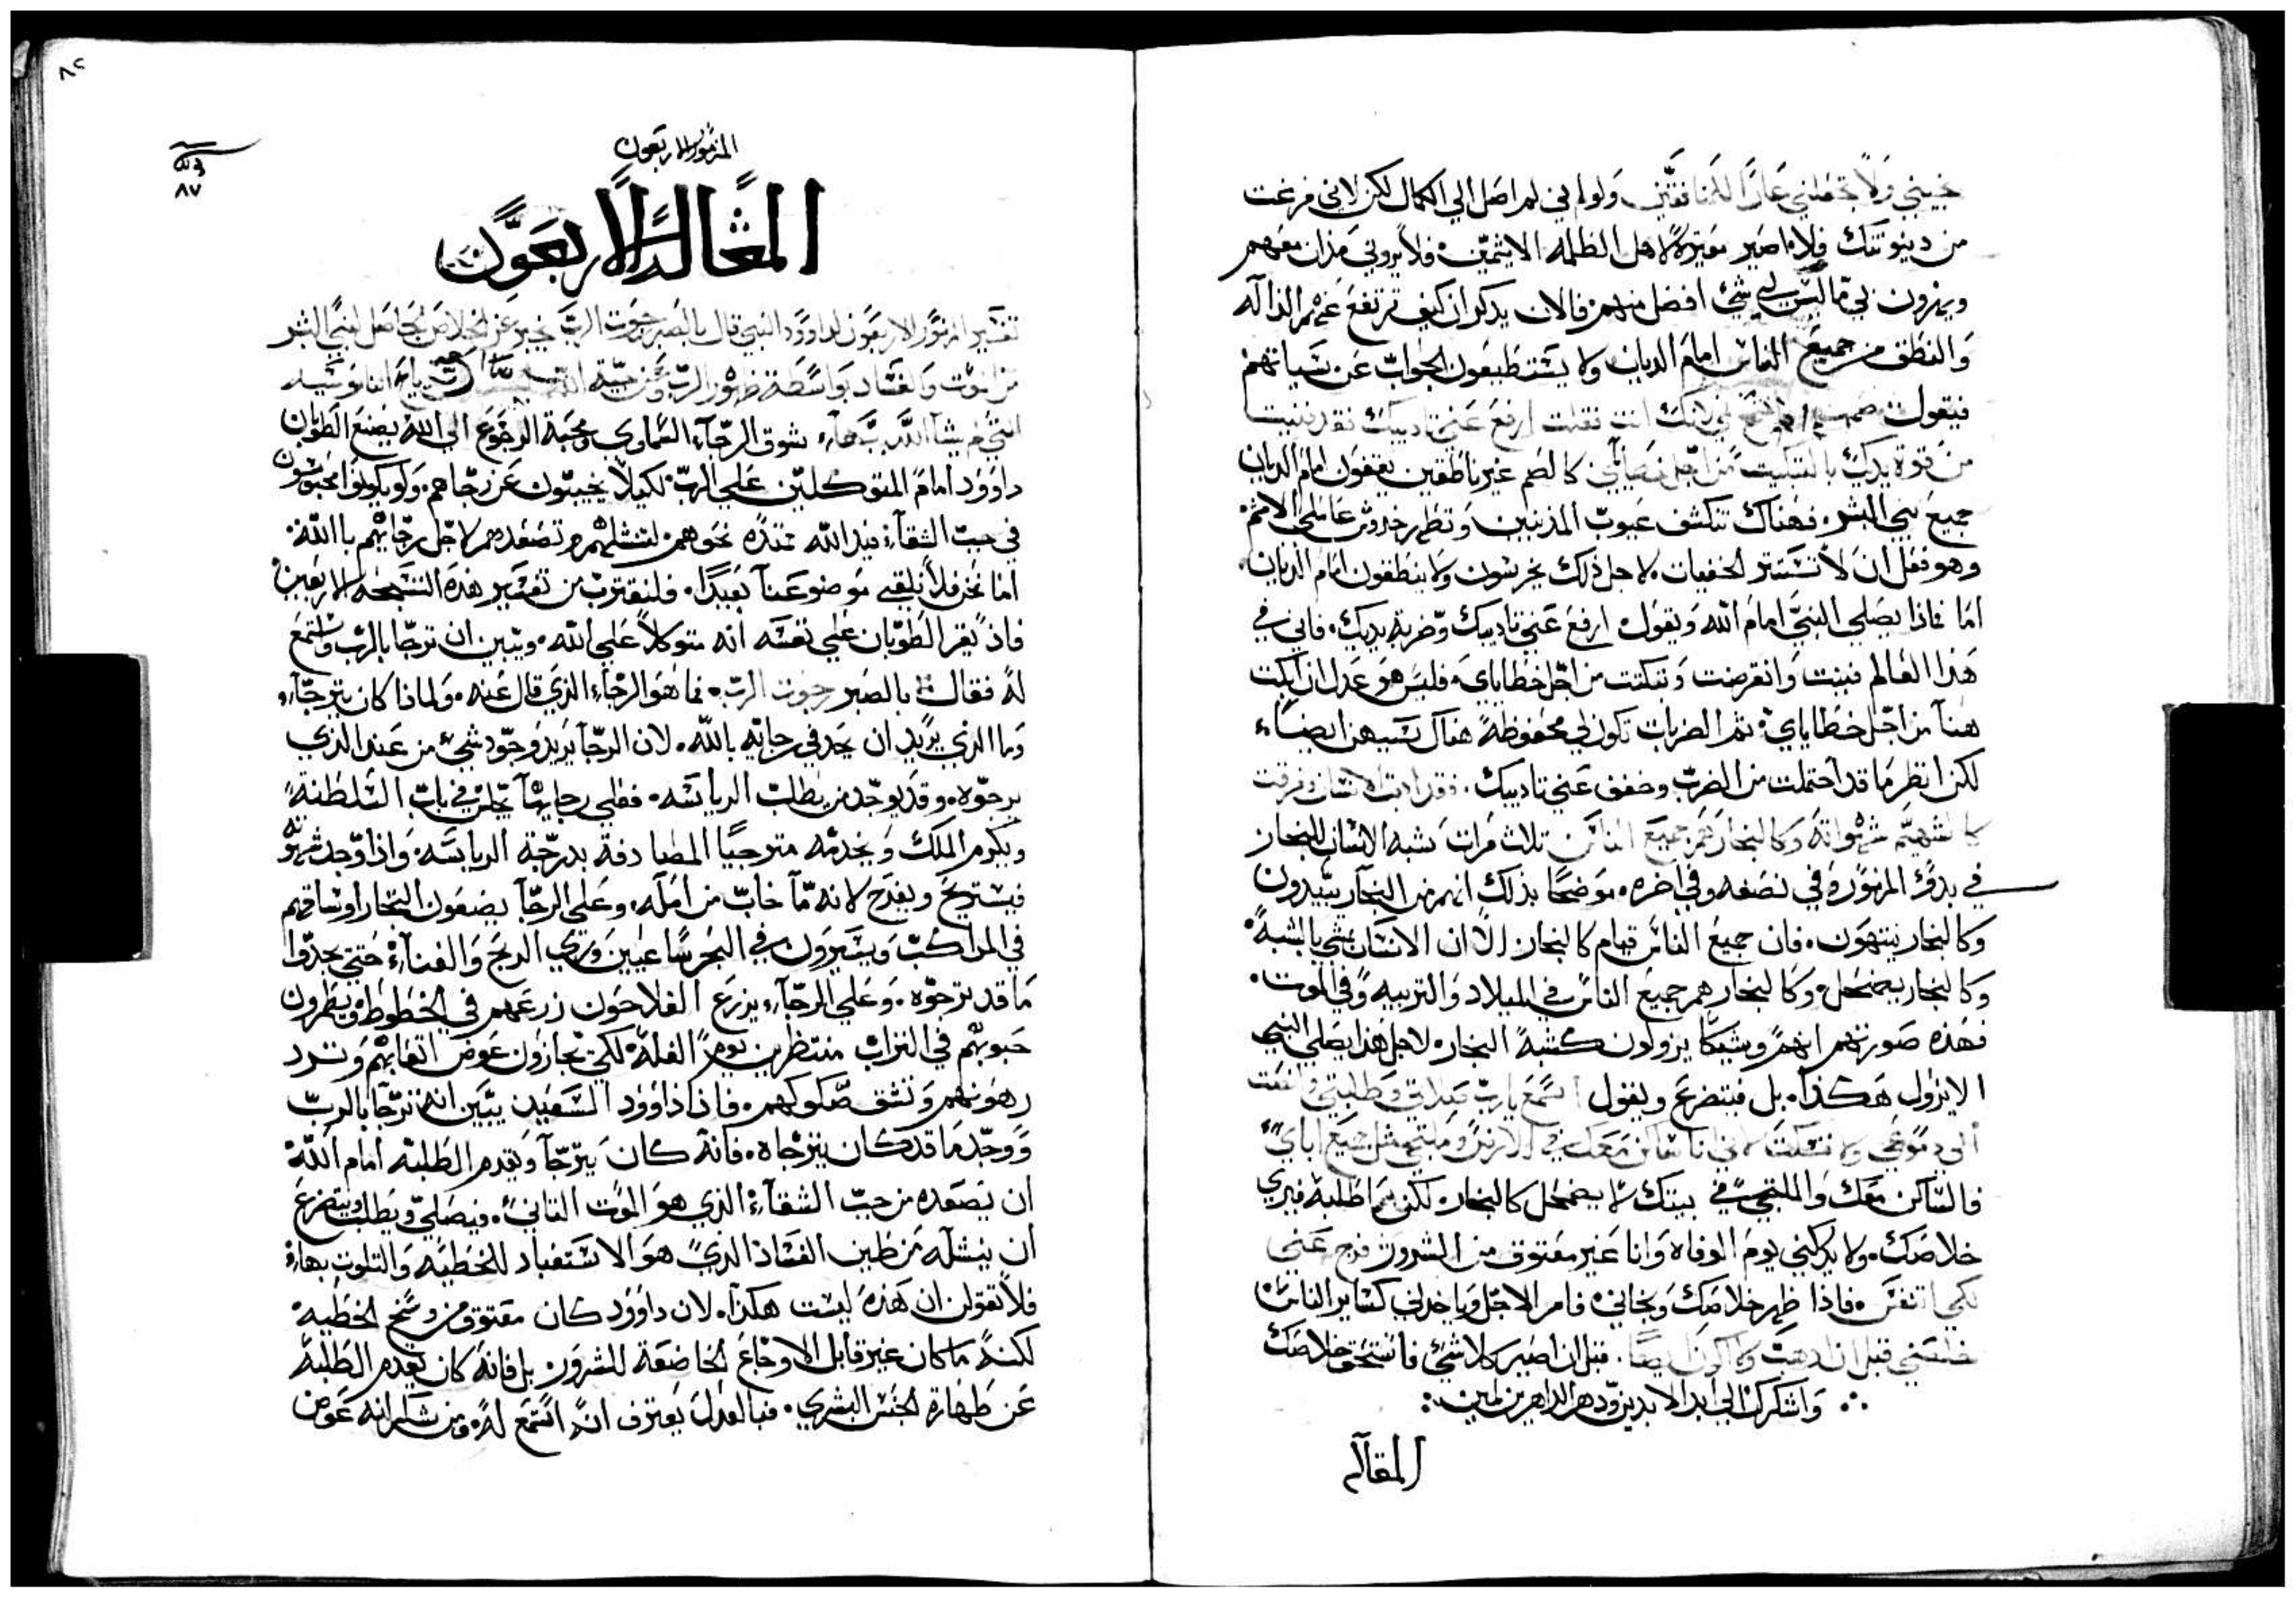 نجيني ولا تجعلني عارًا ولو انني لم اصل الي الكمال لكن لاني فرغت
من دينونتك فلا اصير معيرة لاهل الظلمه الاثمين فلا يروني مدان معهم
ويهزون بي ما ليس لي شي افضل منهم فالان يدكر ان كيف ترتفع
والنطق من جميع الناس امام الديان ولا يستطيعون الجواب عن سياتهم
فيقول لانك انت فعلت ارفع عني تاديبك فقد فنيت
من قوة يدك بالتبكيت من اجل كالصم غير ناطقين يقفون امام الديان
جميع بني البشر فهناك تنكشف عيوب المذنبين وتظهر
وهو فعل ان لا تستتر الخفيات لاجل ذلك يخرسون ولا ينطقون امام الديان
اما فاذا يصلي النبي امام الله ويقول ارفع عني تاديبك وضربة يديك فاني في
هذا العالم فنيت وانقرضت وتبكتت من اجل خطاياي فليس هو عدل ان ابكت
هنا من اجل خطاياي ثم الضربات تكون لي محفوظة هناك ايضا
لكن انظر ما قد احتملت من الضرب وخفف عني تاديبك فقد ادبت الانسان
شهواته وكالبخار هم جميع الناس تلات مرات يشبه الانسان البخار
في بدو المزمور وفي نصفه وفي اخره موضحا بذلك انهم من البخار يبتدون
وكالبخار ينتهون فان جميع الناس قيام كالبخار الا ان الانسان يمشي بالشبه
وكالبخار يضمحل وكالبخار هم جميع الناس في الميلاد والتربيه وفي الموت
فهذه صورتهم انهم يزولون كشبه البخار لاجل هذا يصلي النبي
الا يزول هكذا بل فيتضرع ويقول استمع يارب صلاتي وطلبتي وانصت
الي دموعي ولا تسكت لاني انا ساكن معك في الارض وملتجي مثل جميع اباي
فالساكن معك والملتجي في بيتك لا يضمحل كالبخار لكن ما طلبه فيري
خلاصك ولا يدركني يوم الوفاه وانا غير معتوق من الشرور فرج عني
لكي اتنفس فاذا ظهر خلاصك ونجاني فامر الاجل وياخدني كساير الناس
قبل ان اذهب ولا اكون ايضا قبل ان اصير كلاشي فاستحق خلاصك
واشكرك الي ابد الابدين ودهر الداهرين امين
المقاله
٨٧
المزمور الاربعون
المقالة الاربعون
تفسير المزمور الاربعون لداوود النبي قال بالصبر رجوت الرب يخبر عن الخلاص الحاصل لبني البشر
من الموت والفساد بواسطة ظهور الرب
بشوق الرجاء السماوي ومحبة الرجوع الي الله يصنع الطوبان
داوود امام المتوكلين علي الرب لكيلا يخيبون عن رجاهم ولو يكونوا محبوسون
في جب الشقاء فيد الله ممتده نحوهم لتنشلهم وتصعدهم لاجل رجايهم بالله
اما نحن فلا نلقي موضوعنا بعيدا فلنقترب من تفسير هذه التسبحه الاربعين
فاذ يقر الطوبان علي نفسه انه متوكلا علي الله ويبين ان ترجا بالرب واستمع
له فقال بالصبر رجوت الرب فما هو الرجاء الذي قال عنه ولماذا كان يترجاه
وما الذي يريد ان يجد في رجايه بالله لان الرجا يريد وجود شي من عند الذي
يرجوه وقد يوجد من يطلب الرياسه فعلي رجايها يجلس في باب السلطنة
ويكرم الملك ويخدمه مترجيا المصادفة بدرجة الرياسه واذا وجد
فيستريح ويفرح لانه ما خاب من امله وعلي الرجا يضعون التجار اوساقهم
في المراكب ويسيرون في البحر ساعيين وري الربح والغناء حتي يجدوا
ما قد ترجوه وعلي الرجاء يزرع الفلاحون زرعهم في الخطوط ويطمرون
حبوبهم في التراب منتظرين يوم الغلة لكي يجازون عوض اتعابهم وترد
رهونهم وتشق صكوكهم فاذا داوود السعيد يبين انه ترجا بالرب
ووجد ما قد كان يترجاه فانه كان يترجا ويقدم الطلبه امام الله
ان يصعده من جب الشقاء الذي هو الموت الثاني فيصلي ويطلب ويتضرع
ان ينشله من طين الفساد الذي هو الاستعباد للخطيه والتلوت بها
فلا تقولن ان هذه ليست هكذا لان داوود كان معتوق من وسخ الخطيه
لكنه ما كان غير قابل الاوجاع الخاضعة للشرور بل فانه كان يقدم الطلبة
عن طهارة الجنس البشري فبالعدل يعترف انه استمع له ومن شا انه عوض